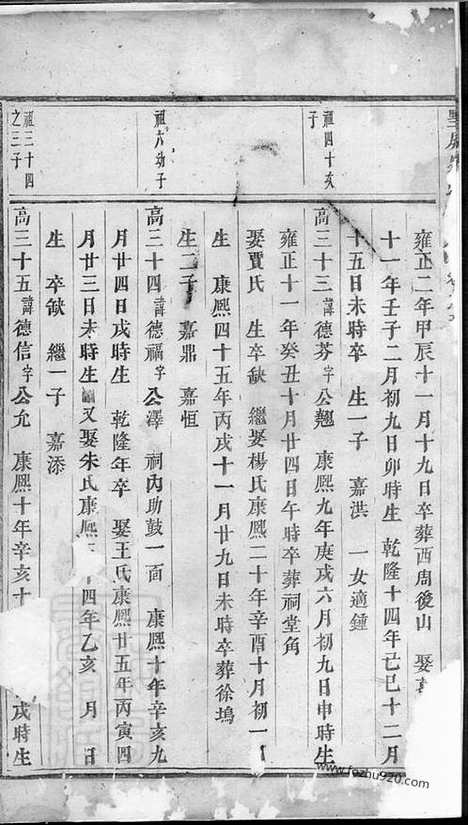 祖四十亥
子
祖六幼子
祖三十四
之三子
雍正二年甲辰十一月十九日卒葬西周後山 娶
十一年壬子二月初九日卯時生 乾隆十四年己巳十二月
十五日未時卒 生一子 嘉洪 一女適鍾
高三十三諱德芬字公翹 康熙九年庚戌六月初九日申時生
雍正十一年癸丑十月廿四日午時卒葬祠堂角
娶賈氏 生卒缺 繼娶楊氏康熙二十年辛酉十月初一
生 康熙四十五年丙戌十一月廿九日未時卒葬徐塢
生二子 嘉鼎 嘉恒
高三十四諱德福字公澤 祠內助鼓一面 康熙十年辛亥九
月廿四日戌時生 乾隆年卒 娶王氏康熙廿五年丙寅四
月廿三日未時生 又娶朱氏康熙 十四年乙亥 月 日
生 卒缺 繼一子 嘉添
高三十五諱德信字公允 康熙十年辛亥十 戌時生
www.fozhu920.com